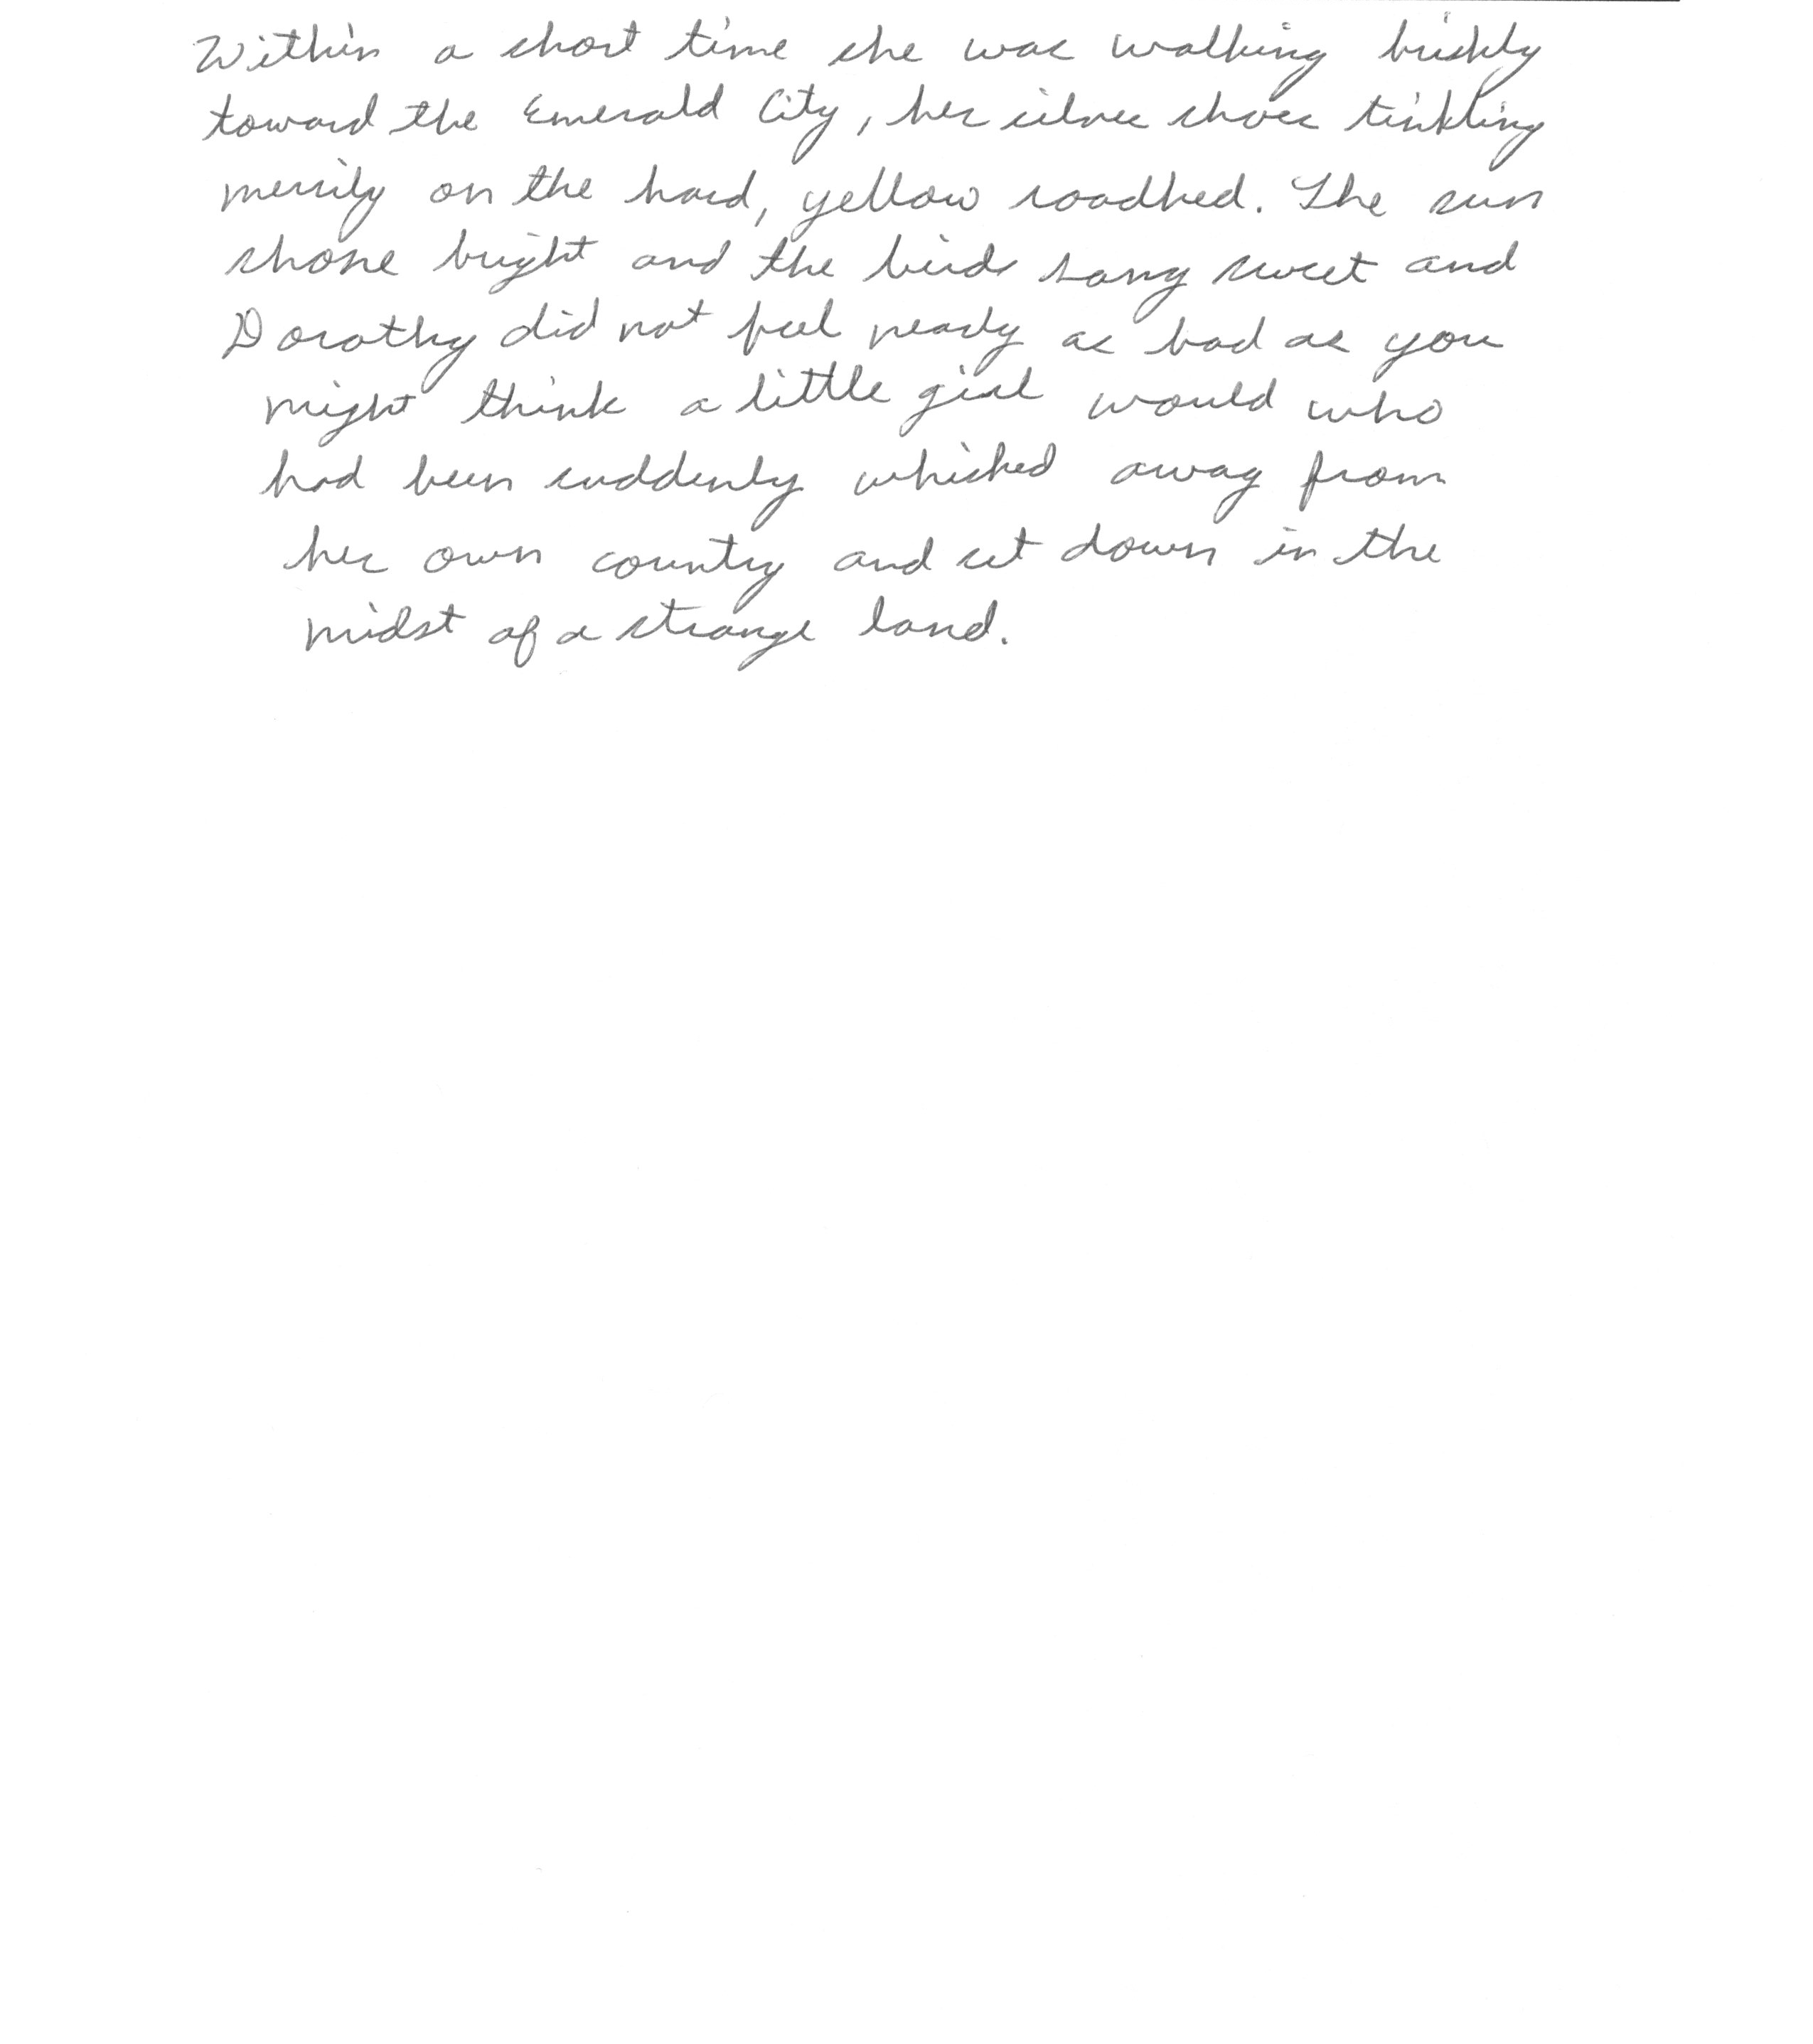 Within a short time she was walking briskly
toward the Emerald City, her silver shoes tinkling
merrily on the hard, yellow roadbed. The sun
shone bright and the birds sang sweet and
Dorothy did not feel nearly as bad as you
might think a little girl would who
had been suddenly whisked away from
her own country and set down in the
midst of a strange land.